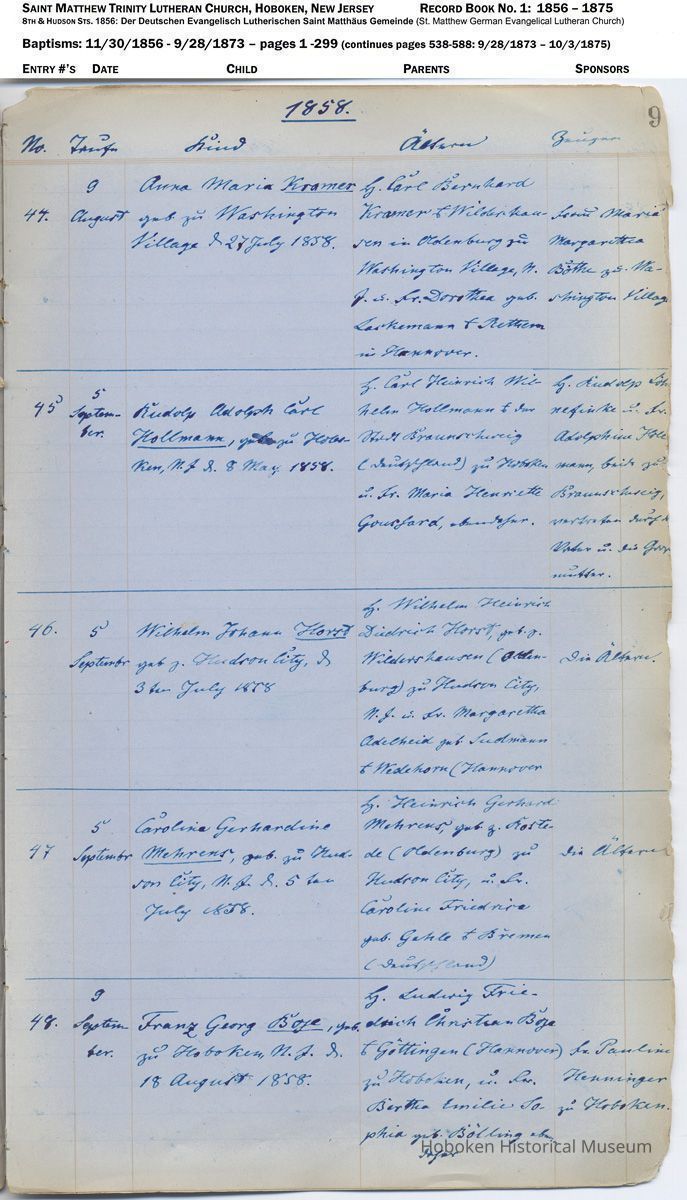 SAINT MATTHEW TRINITY LUTHERAN CHURCH, HOBOKEN, NEW JERSEY RECORD BOOK NO. 1: 1856 – 1875
8TH & HUDSON STS. 1856: Der Deutschen Evangelisch Lutherischen Saint Matthäus Gemeinde (St. Matthew German Evangelical Lutheran Church)
Baptisms: 11/30/1856 - 9/28/1873 – pages 1 -299 (continues pages 538-588: 9/28/1873 – 10/3/1875)
ENTRY #'S DATE CHILD PARENTS SPONSORS
1858. 9
No. Taufe Kind Ältern Zeugen
44.
9
August
Anna Maria Kramer
geb. zu Washington
Village d. 27 July 1858.
H. Carl Bernhard
Kramer
Wildeshau-
sen in Oldenburg zu
Washington Village, N.
J. u. Fr. Dorothea geb.
in Hannover.
Frau Maria
Margaretha
Böthe zu Wa-
shington Village
45
5
Septem-
ber.
Rudolp Adolph Carl
Hollmann, zu Hobo-
ken, N.J. d. 8 May 1858.
H. Carl Heinrich Wil-
helm Hollmann
Stadt Braunschweig
(Deutschland) zu Hoboken
u. Fr. Maria Henriette
ebendaher.
H. Rudolph
u. Fr.
Adolphine
beide zu
Braunschweig,
vertreten durch
Vater u. die
mutter.
46.
5
Septembr
Wilhelm Johann Horst
geb. z. Hudson City, d.
3ten July 1858
H. Wilhelm Heinrich
Diedrich Horst, geb. z.
Wildershausen (Olden-
burg) zu Hudson City,
N.J. u. Fr. Margaretha
Adelheid geb. Sudmann
Wedehorn (Hannover
die Ältern.
47
5
Septembr
Carolina Gerhardine
Mehrens, geb. zu Hud-
son City, N.J. d. 5 ten
July 1858.
H. Heinrich Gerhard
Mehrens, geb. z. Raste-
de (Oldenburg) zu
Hudson City, u. Fr.
Caroline Friedrica
geb. Gahle Bremen
(Deutschland)
die Ältern
48.
9
Septem
ber.
Franz Georg Boje, geb.
zu Hoboken, N.J. d.
18 August 1858.
H. Ludwig Frie-
drich Christian Boje
Göttingen (Hannover)
zu Hoboken, u. Fr.
Bertha Emilie So-
phia geb. Bölling eben
daher
Fr. Pauline
Henninger
zu Hoboken.
Hoboken Historical Museum